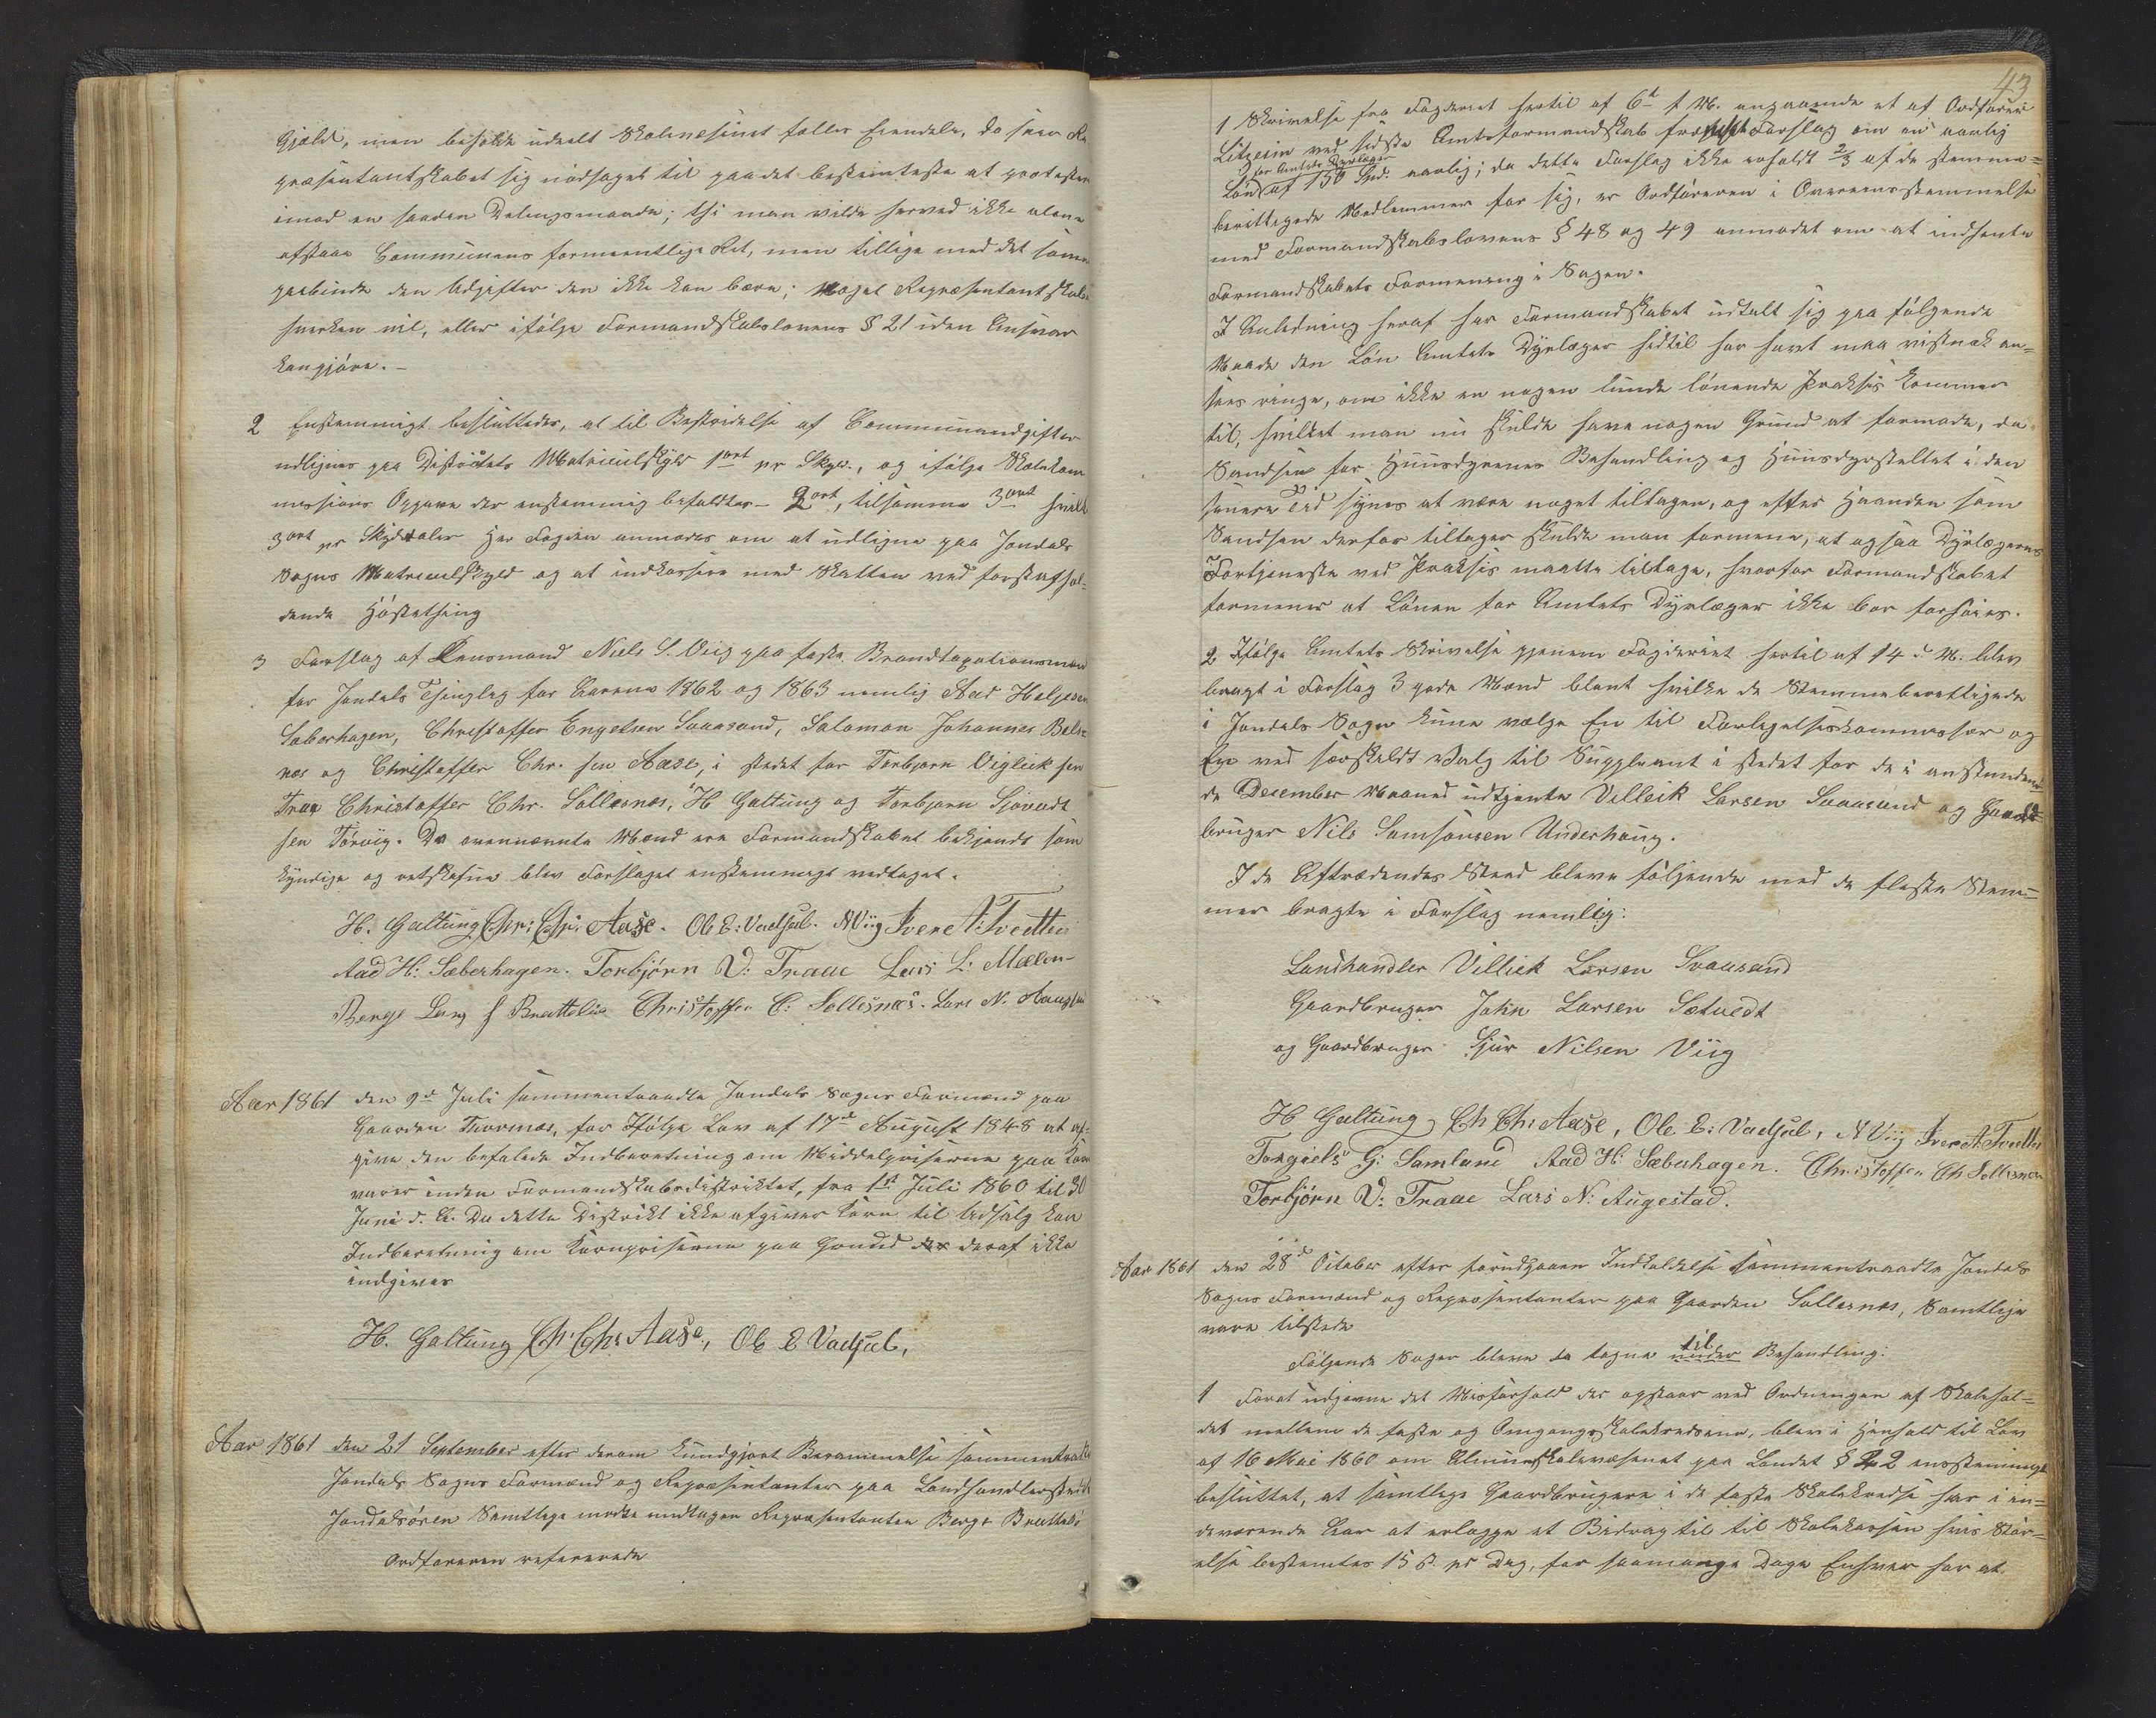 Gjæld, men beholde udeelt Skolevæsenet fælles Eiendele, da seer Re
præsentantskabet sig nødsaget til paa det bestemteste at protestere
imod en saadan Delingsmaade; thi man vilde herved ikke alene
afstaae Communens formeentlige Ret, men tillige med det samme
paabinde den Udgifter den ikke kan bære; noget Repræsentantskabet
hverken vil, eller ifølge Formandskabslovens § 21 uden Ansvar
kan gjøre. –
2 Enstemmigt besluttedes, at til Bestridelse af Communeudgifter
udlignes paa Districtets Matriculskyld 1 ort pr Skyld., og ifølge Skolekom
missions Opgave der enstemmig befaldtes – 2 ort, tilsamme 3 ort hvilke
3 ort pr Skylddaler Hr Fogden anmodes om at udligne paa Jondals
Sogns Matriculskyld og at indkassere med Skatten ved førstafhol-
dende Høstething
3 Forslag af Lensmand Niels S. Viig paa faste Brandtaxationsmænd
for Jondals Thinglag for Aarene 1862 og 1863 nemlig Aad Heljesen
Sæberhagen, Christoffer Engelsen Svaasand, Salomon Johannes Bels-
næs og Christoffer Chr. sen Aase, i stedet for Torbjørn Vigleik sen
Traa Christoffer Chr. Sollesnæs, H Galtung og Torbjørn Sjovadt
sen Tørvig. Da ovennævnte Mænd ere Formandskabet bekjendt som
kyndige og retskafne blev Forslaget enstemmigt vedtaget.
H. Galtung Chr: Chr: Aase. Ole E: Vadsel. N Viig Iver A: Tvedten
Aad H: Sæberhagen. Torbjørn V: Traae Lars L: Mælen
Berge Larsf Brattelie Christoffer C: Sollesnæs. Lars N. Augestad
Aar 1861 den 9d Juli sammentraadte Jondals Sogns Formænd paa
Gaarden Thornæs, for Ifølge Lov af 17d August 1848 at af-
give den befalede Indberetning om Middelpriserne paa Korn
varer inden Formandskabsdistriktet, fra 1st Juli 1860 til 30
Juni d. A. Da dette Distrikt ikke afgiver Korn til Udsalg kan
Indberetning om Kornpriserne paa Grund deraf ikke
indgives
H. Galtung Ch: Chr Aase, Ole E Vadsel,
Aar 1861 den 21 September efter derom kundgjort Berammelse sammentraadte
Jondals Sogns Formænd og Repræsentanter paa Landhandlerstedet
Jondalsøren Samtlige mødte undtagen Repræsentanten Berge Brattelie
Ordføreren refererede
43
1 Skrivelse fra Fogderiet hertil af 6t f M. angaaende et af Ordfører
Litzeim ved sidste Amtsformandskab fremsat Forslag om en aarlig
for Amtets Dyrlæge
Løn af 150 Spd. aarlig; da dette Forslag ikke erholdt 2/3 af de stemme-
berettigede Medlemmer for sig, er Ordføreren i Overensstemmelse
med Formandskabslovens § 48 og 49 anmodet om at indhente
Formandskabets Formening i Sagen.
I Anledning heraf har Formandskabet udtalt sig paa følgende
Maade den Løn Amtets Dyrlæger hidtil har havt maa vistnok an-
sees ringe, om ikke en nogen lunde lønende Praksis kommer
til, hvilket man nu skulde have nogen Grund at formode, da
Sandsen for Huusdyrenes Behandling og Huusdyrstellet i den
senere Tid synes at være noget tiltagen, og efter Haanden som
Sandsen derfor tiltager skulde man formene, at ogsaa Dyrlægerens
Fortjeneste ved Praksis maatte tiltage, hvorfor Formandskabet
formener at Lønen for Amtets Dyrlæger ikke bør forhøies.
2 Ifølge Amtets Skrivelse gjennem Fogderiet hertil af 14 d M. blev
bragt i Forslag 3 gode Mænd blant hvilke de Stemmeberettigede
i Jondals Sogn kune vælge En til Forligelseskommissær og
En ved særskeldt Valg til Suppleant i stedet for de i anstunden-
de December Maaned udtjente Villeik Larsen Svaasand og Gaard
bruger Nils Samsonsen Underhoug.
I de Aftrædendes Sted bleve følgende med de fleste Stem-
mer bragte i Forslag nemlig:
Landhandler Villiek Larsen Svaasand
Gaardbruger John Larsen Sætvedt
og Gaardbruger Sjur Nilsen Viig
H Galtung, Ch Chr Aase, Ole E: Vadsel, N Viig Iver A Tvedten
Torgiels G: Samland Aad H: Sæberhagen. Christoffer Ch Sollesnæs
Torbjørn V: Traae Lars N: Augestad.
Aar 1861 den 28d October efter forudgaaen Indkaldelse sammentraadte Jondals
Sogns Formænd og Repræsentanter paa Gaarden Sollesnæs, Samtlige
vare tilstede
til
Følgende Sager bleve da tagne under Behandling:
1 Forat udjevne det Misforhold der opstaar ved Ordningen af Skolehol-
det mellem de faste og Omgangsskolekredsene, blev i Henhold til Lov
af 16 Mai 1860 om Almueskolevæsenet paa Landet § 22 enstemmigt
besluttet, at samtlige Gaardbrugere i de faste Skolekredse har i in-
deværende Aar at erlægge et Bidrag til til Skolekassen hvis Stør-
else bestemtes 15 s. pr Dag, for saamange Dage Enhver har at